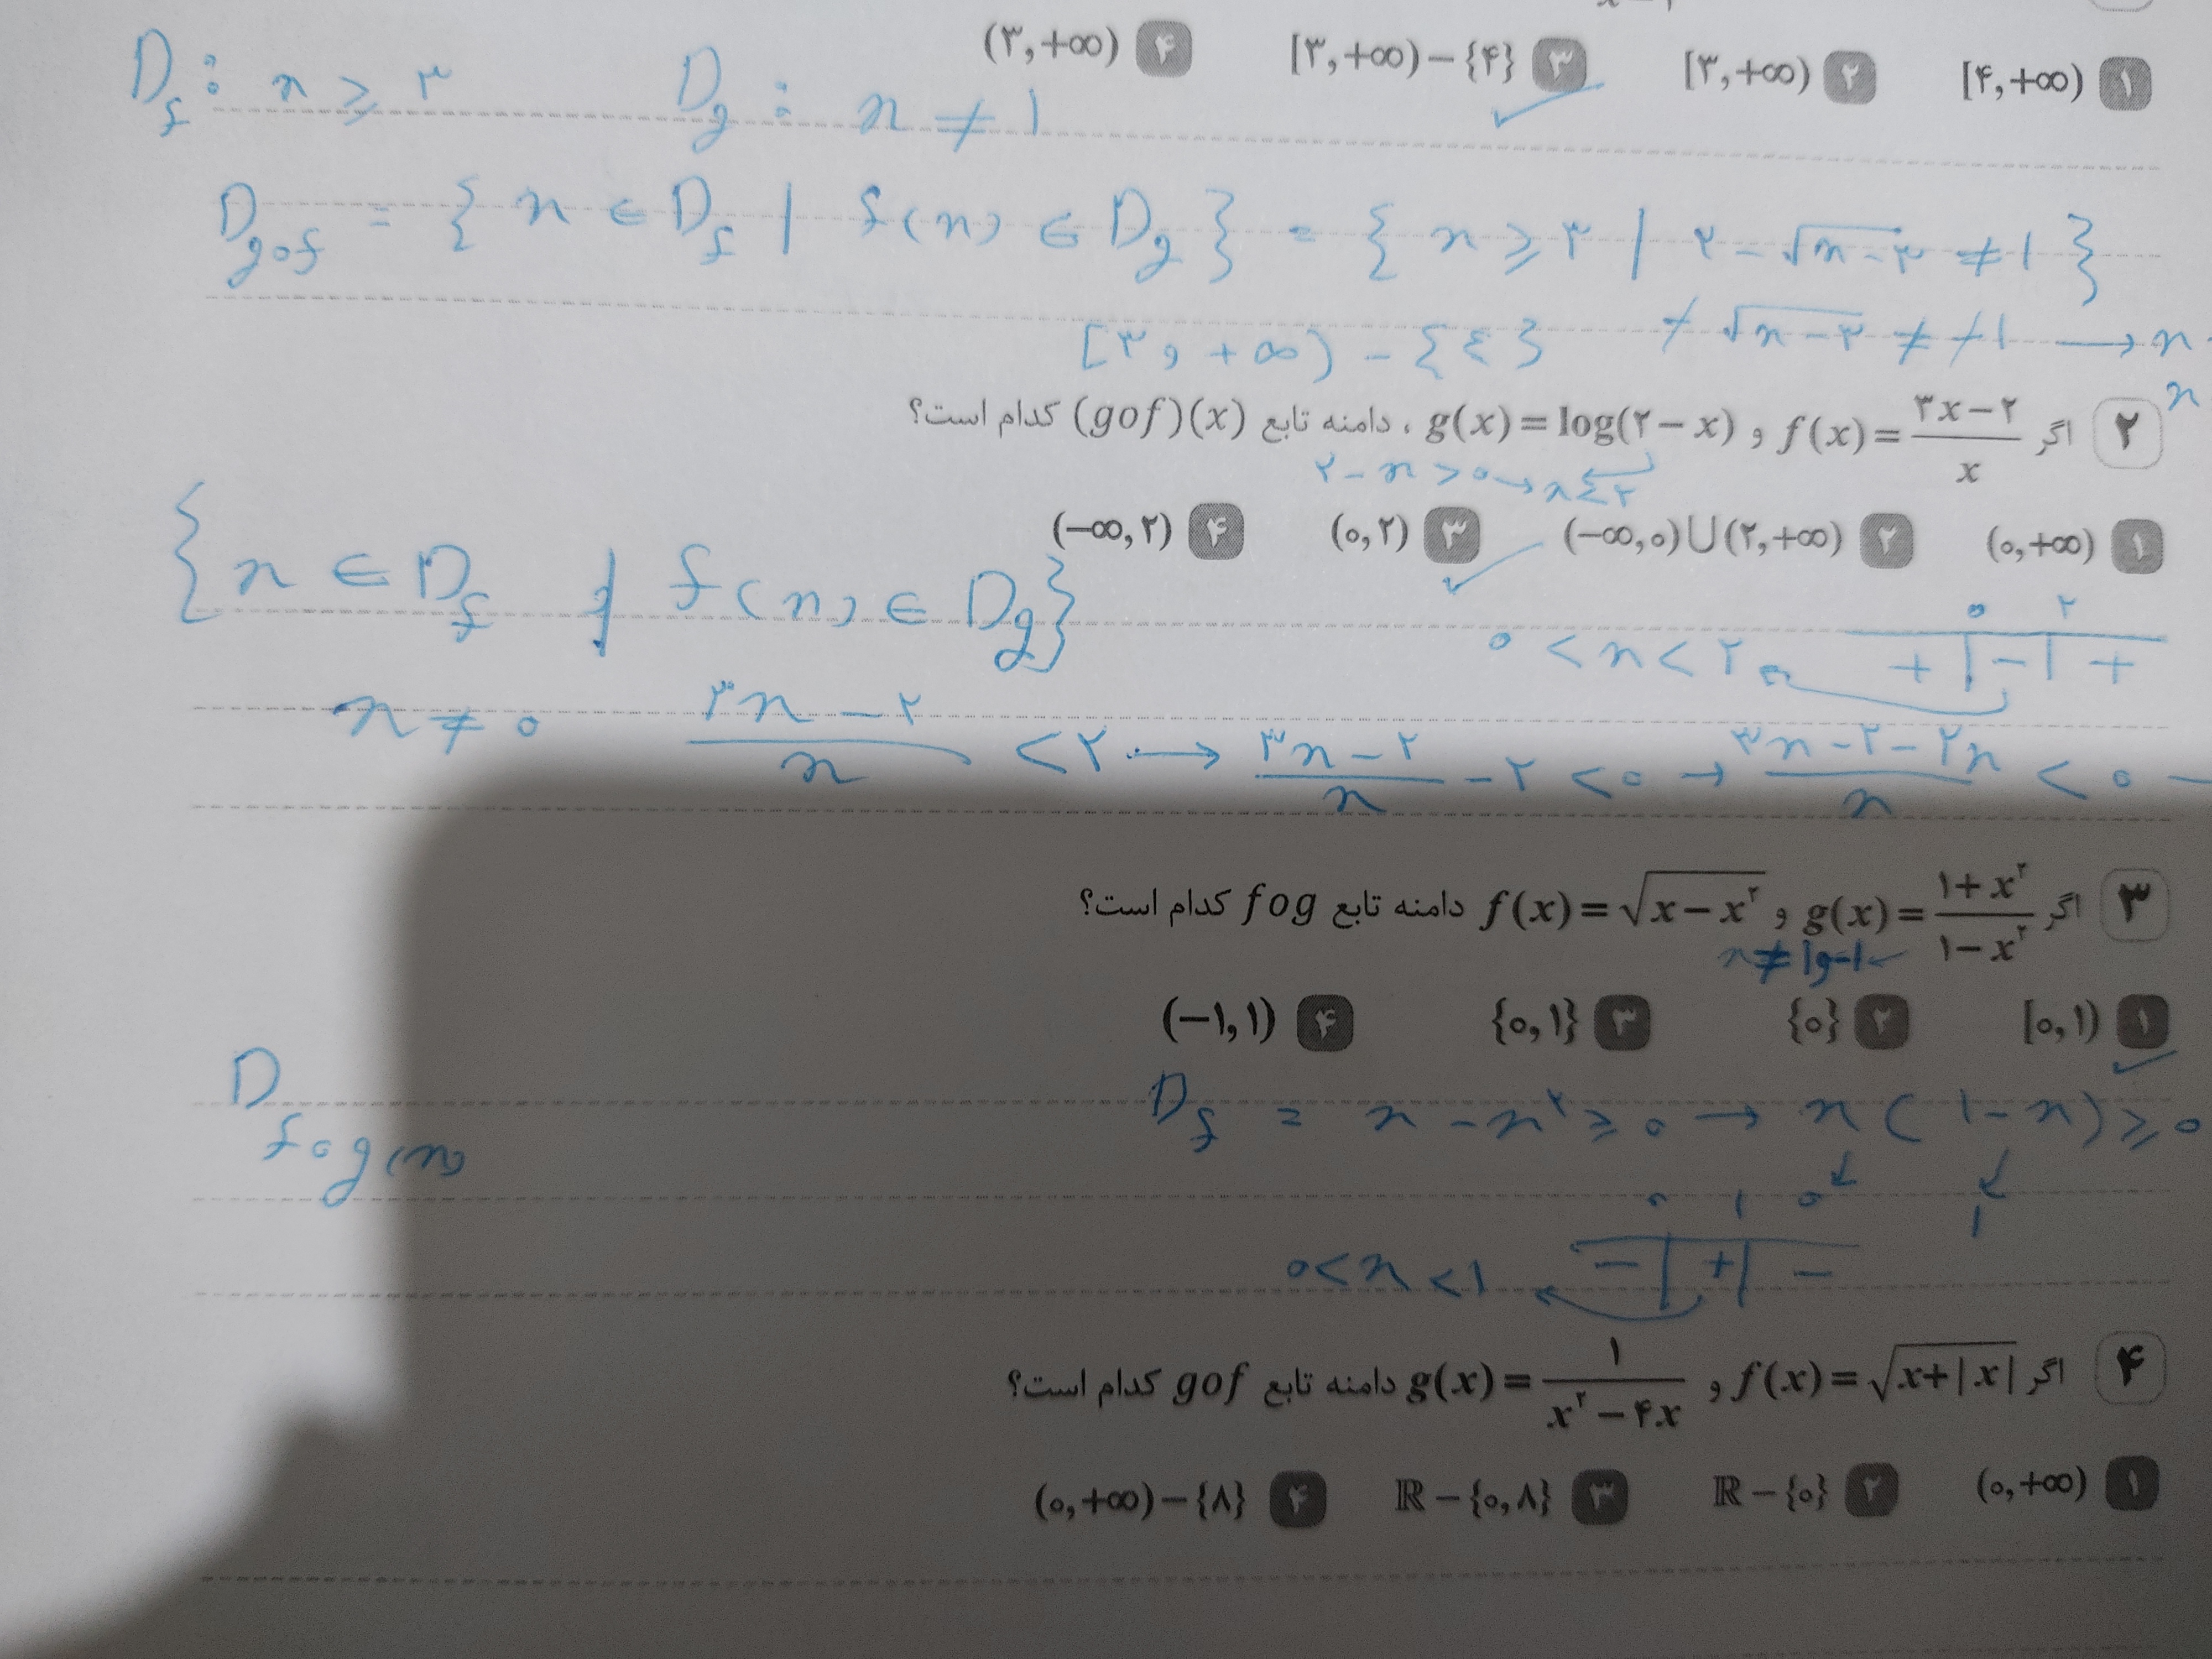 ۱ [۴,+∞) ۲ [۳,+∞) ۳ [۳,+∞)−{۴} ۴ (۳,+∞)
D_f : x ≥ ۳ D_g : x ≠ ۱
D_gof = { x ∈ D_f | f(x) ∈ D_g } = { x ≥ ۳ | ۲ − √x−۳ ≠ ۱ }
≠ √x−۳ ≠ ≠۱ → x
[۳, +∞) − {٤}
x
۲ اگر f(x) = (۳x−۲)/x و g(x) = log(۲−x) ، دامنه تابع (gof)(x) کدام است؟
۲ − x > ۰ → x < ۲
۱ (۰,+∞) ۲ (−∞,۰)∪(۲,+∞) ۳ (۰,۲) ۴ (−∞,۲)
{ x ∈ D_f | f(x) ∈ D_g }
۰ ۲
۰ < x < ۲ + | − | +
x ≠ ۰ (۳x − ۲)/x < ۲ → (۳x − ۲)/x − ۲ < ۰ → (۳x − ۲ − ۲x)/x < ۰ −
۳ اگر g(x) = (۱+x^۲)/(۱−x^۲) و f(x) = √x−x^۲ دامنه تابع fog کدام است؟
x ≠ ۱و-۱ ←
۱ [۰,۱) ۲ {۰} ۳ {۰,۱} ۴ (−۱,۱)
D_fog(x)
D_f = x − x^۲ ≥ ۰ → x ( ۱ − x) ≥ ۰
۰ ۱ ۰ ۱
۰ < x < ۱ − | + | −
۴ اگر f(x) = √x+|x| و g(x) = ۱/(x^۲−۴x) دامنه تابع gof کدام است؟
۱ (۰,+∞) ۲ ℝ−{۰} ۳ ℝ−{۰,۸} ۴ (۰,+∞)−{۸}